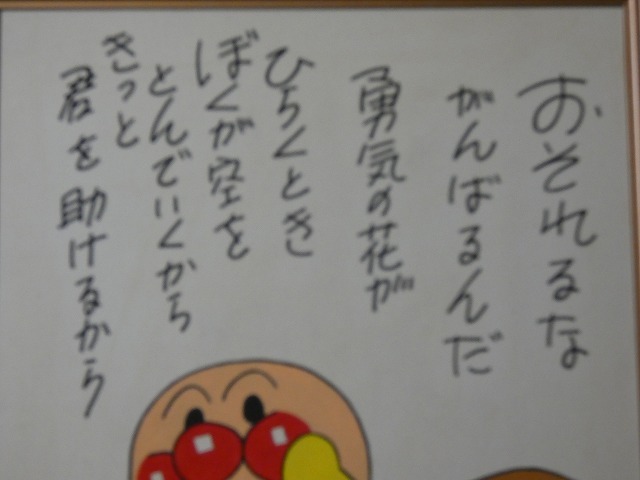 おそれるな
がんばるんだ
勇気の花が
ひらくとき
ぼくが空を
とんでいくから
きっと
君を助けるから